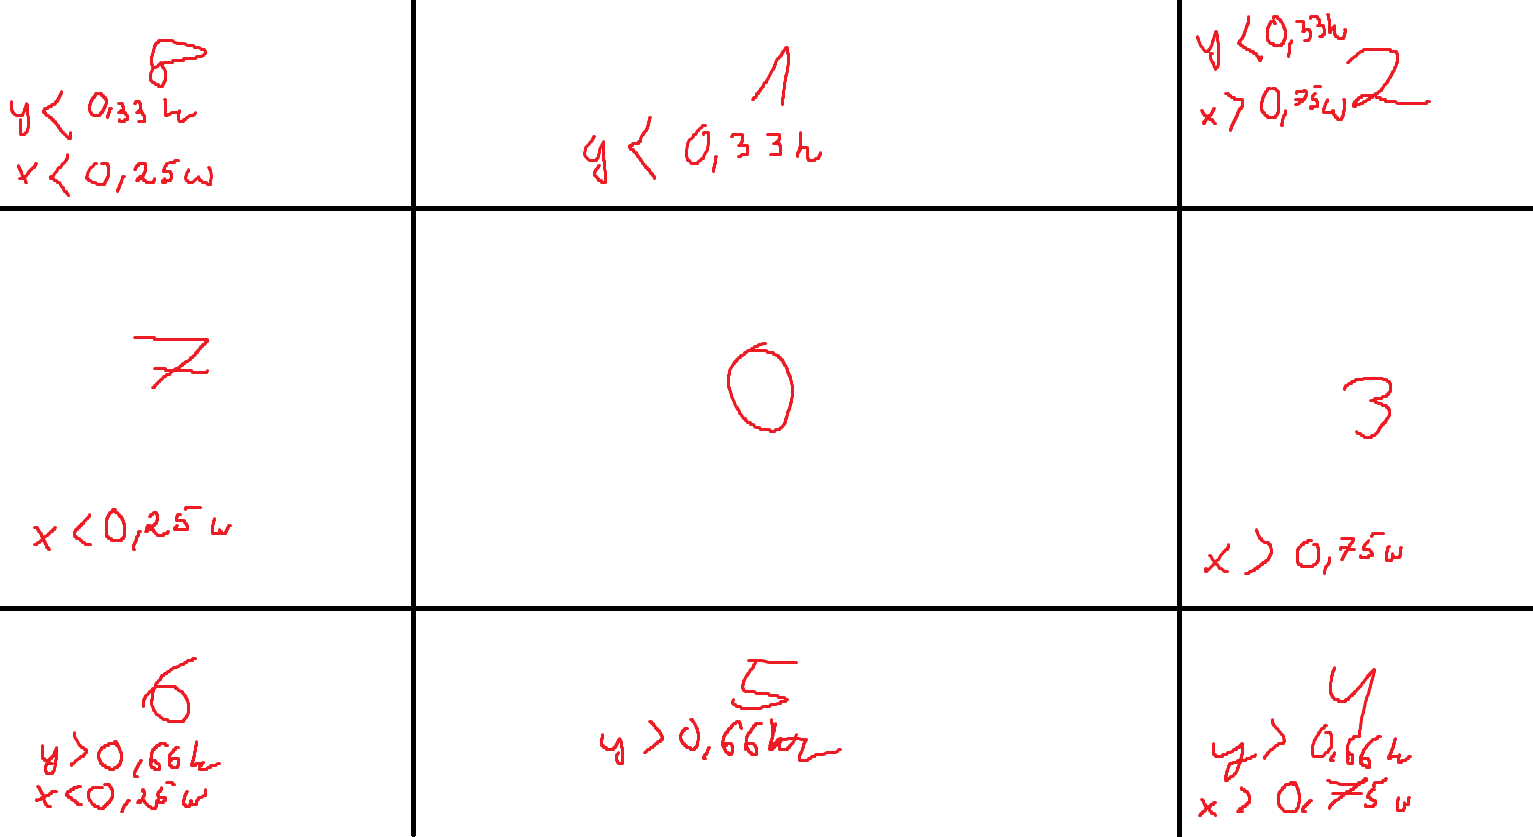 8
y < 0,33 h
x < 0,25 w
1
y < 0,33 h
y < 0,33h
2
x > 0,75w
7
x < 0,25 w
0
3
x > 0,75 w
6
y > 0,66 h
x < 0,25 w
5
y > 0,66 h
4
y > 0,66 h
x > 0,75 w